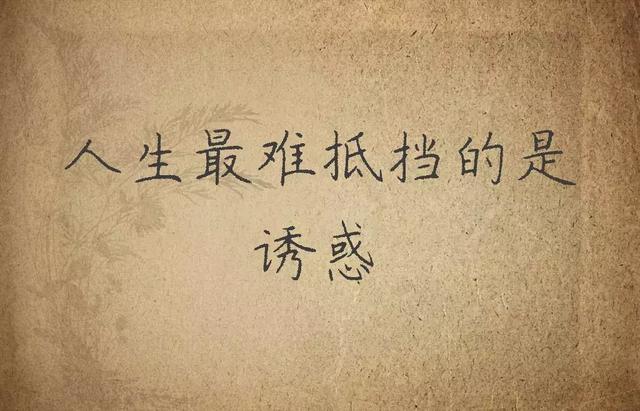 人生最难抵挡的是
诱惑